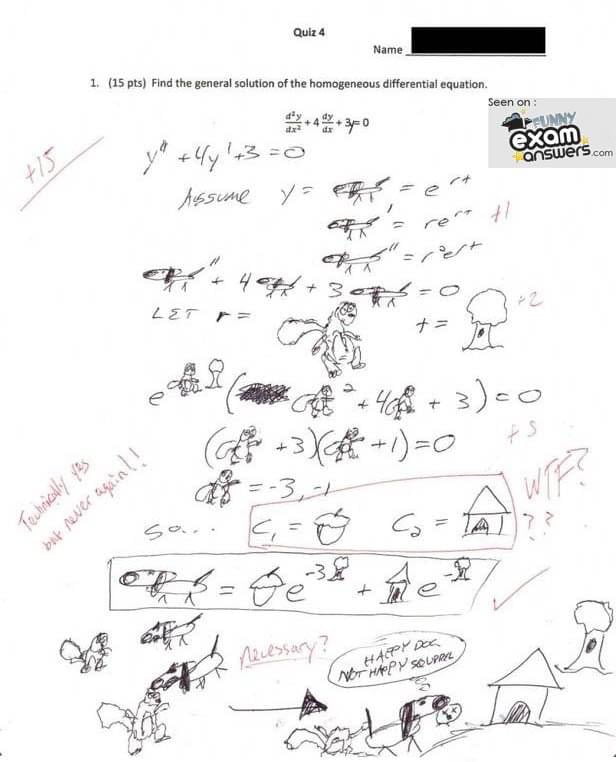 Quiz 4
Name
1. (15 pts) Find the general solution of the homogeneous differential equation.
Seen on :
FUNNY
exam
answers.com
d²y/dx² + 4 dy/dx + 3y = 0
+15
y" + 4y' + 3 = 0
ASSUME y = = e^rt
' = re^rt +1
" = r²e^rt
" + 4 + 3 = 0
LET r = t = +2
e ( ² + 4 + 3) = 0
( + 3)( + 1) = 0 +5
= -3, -1
Technically yes
but never again!!
WTF?
??
SO... C₁ = C₂ =
= e^-3 + e^-
Necessary?
HAPPY DOG
NOT HAPPY SQUIRREL